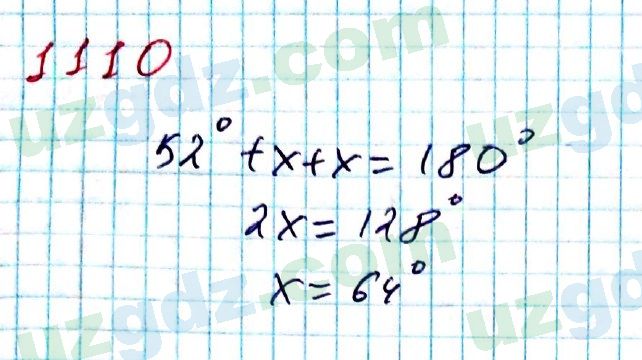 1110
52° + x + x = 180°
2x = 128°
x = 64°
uzgdz.com
uzgdz.com